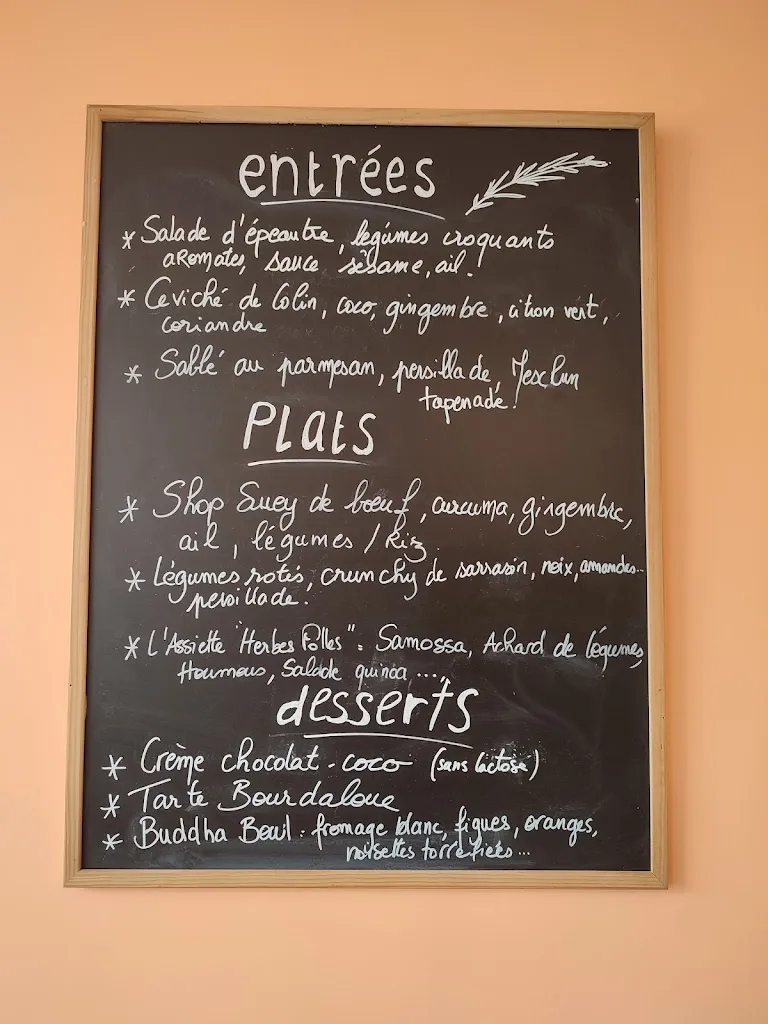 entrées
* Salade d'épeautre, légumes croquants
aromates, sauce sésame, ail !
* Ceviché de Colin, coco, gingembre, citron vert,
coriandre
* Sablé au parmesan, persillade, Mesclun
tapenade !
Plats
* Shop Suey de bœuf, curcuma, gingembre,
ail, légumes / Riz
* Légumes rotis, crunchy de sarrasin, noix, amandes..
persillade.
* L'Assiette "Herbes Folles" : Samossa, Achard de légumes,
Houmous, Salade quinoa ....,
desserts
* Crème chocolat - coco (sans lactose)
* Tarte Bourdaloue
* Buddha Bowl : fromage blanc, figues, oranges,
noisettes torréfiées...